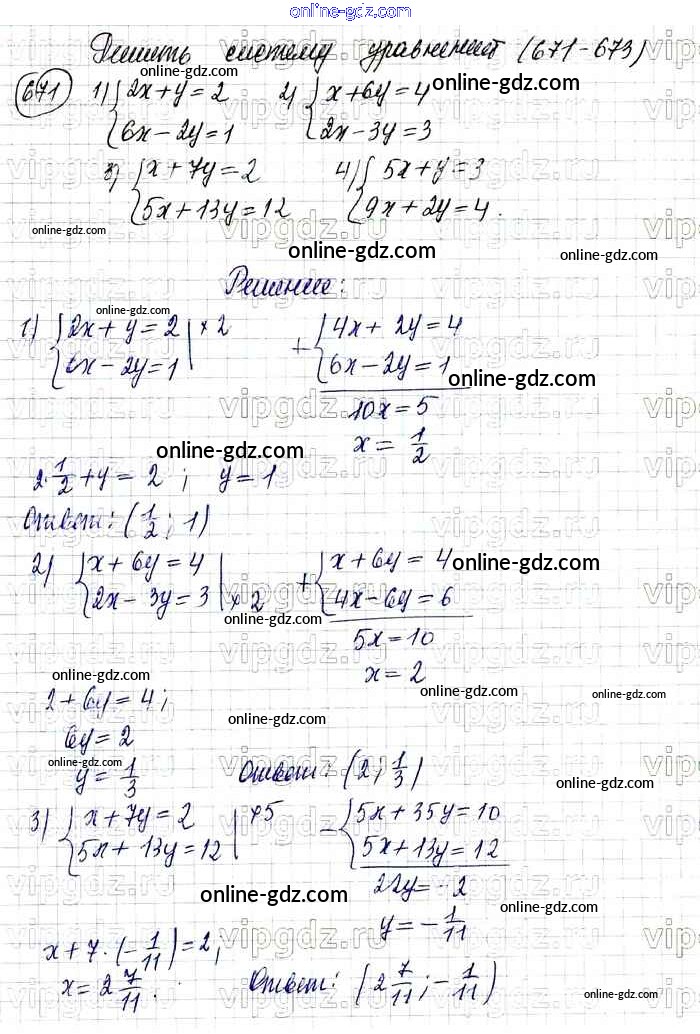 online-gdz.com
Решить систему уравнений (671-673)
671 1) {2x+y=2 2) {x+6y=4
{6x-2y=1 {2x-3y=3
3) {x+7y=2 4) {5x+y=3
{5x+13y=12 {9x+2y=4.
online-gdz.com
Решение:
1) {2x+y=2 |×2 + {4x+2y=4
{6x-2y=1 {6x-2y=1
10x=5
x=1/2
2·1/2+y=2; y=1
Ответ: (1/2; 1)
2) {x+6y=4 + {x+6y=4
{2x-3y=3 |×2 {4x-6y=6
5x=10
x=2
2+6y=4;
6y=2
y=1/3 Ответ: (2; 1/3)
3) {x+7y=2 |×5 - {5x+35y=10
{5x+13y=12 {5x+13y=12
22y=-2
y=-1/11
x+7·(-1/11)=2;
x=2 7/11. Ответ: (2 7/11; -1/11)
online-gdz.com
vipgdz.ru